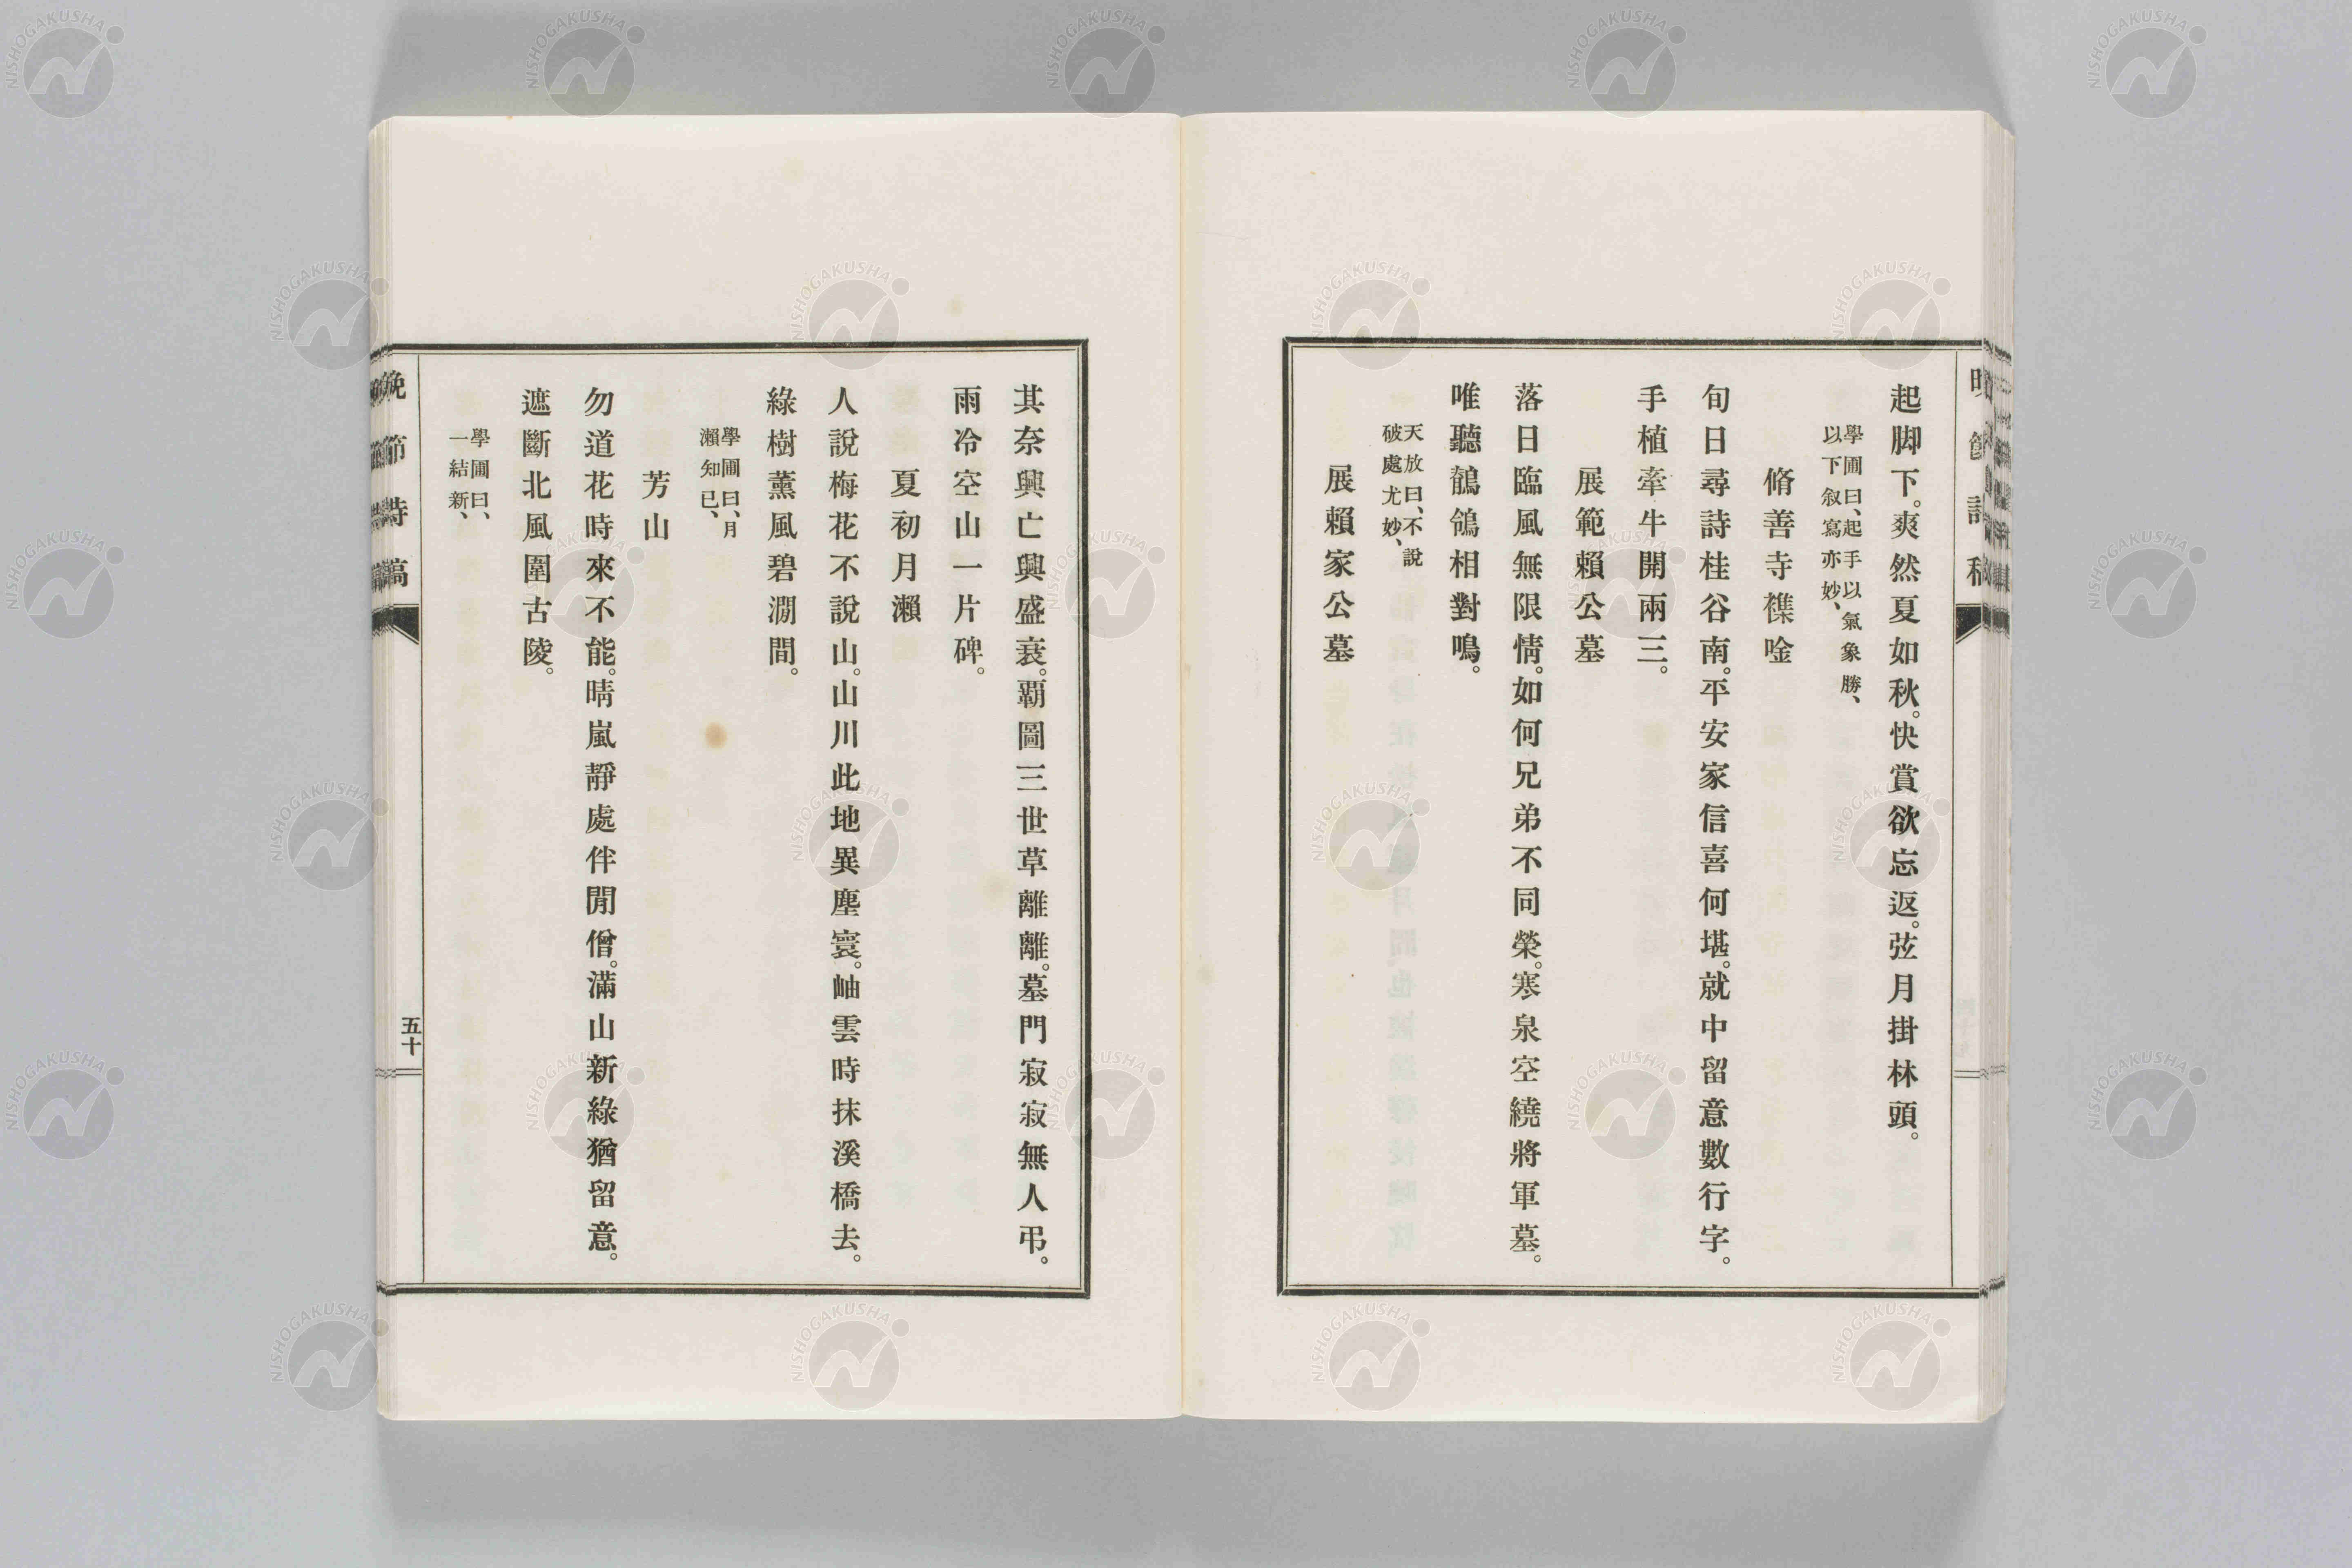 起脚下。爽然夏如秋。快賞欲忘返。弦月掛林頭。
學圃曰、起手以氣象勝、
以下叙寫亦妙、
脩善寺襍唫
旬日尋詩桂谷南。平安家信喜何堪。就中留意數行字。
手植牽牛開兩三。
展範賴公墓
落日臨風無限情。如何兄弟不同榮。寒泉空繞將軍墓。
唯聽鶺鴒相對鳴。
天放曰、不說
破處尤妙、
展賴家公墓
其奈興亡興盛衰。覇圖三世草離離。墓門寂寂無人弔。
雨冷空山一片碑。
夏初月瀨
人說梅花不說山。山川此地異塵寰。岫雲時抹溪橋去。
綠樹薰風碧澗間。
學圃曰、月
瀨知已、
芳山
勿道花時來不能。晴嵐靜處伴閒僧。滿山新綠猶留意。
遮斷北風圍古陵。
學圃曰、
一結新、
晩節詩稿
五十
NISHOGAKUSHA